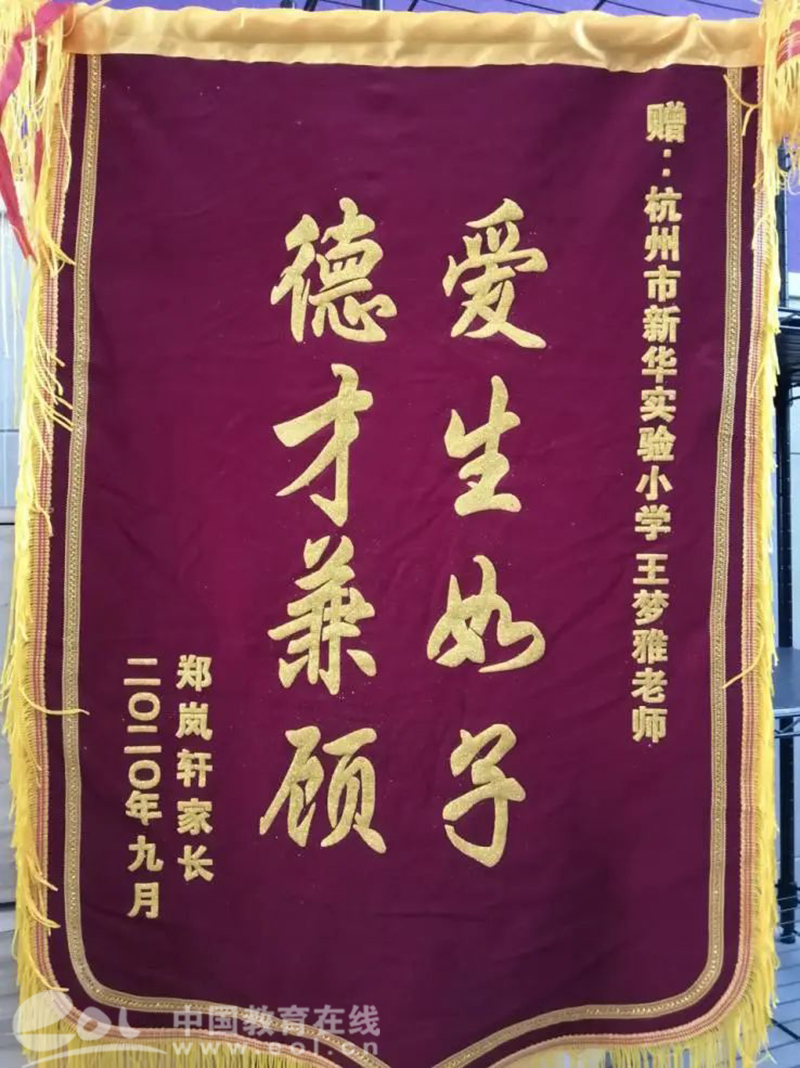 赠：杭州市新华实验小学 王梦雅老师
爱生如子
德才兼顾
郑岚轩家长
二〇二〇年九月
eol 中国教育在线
www.eol.cn